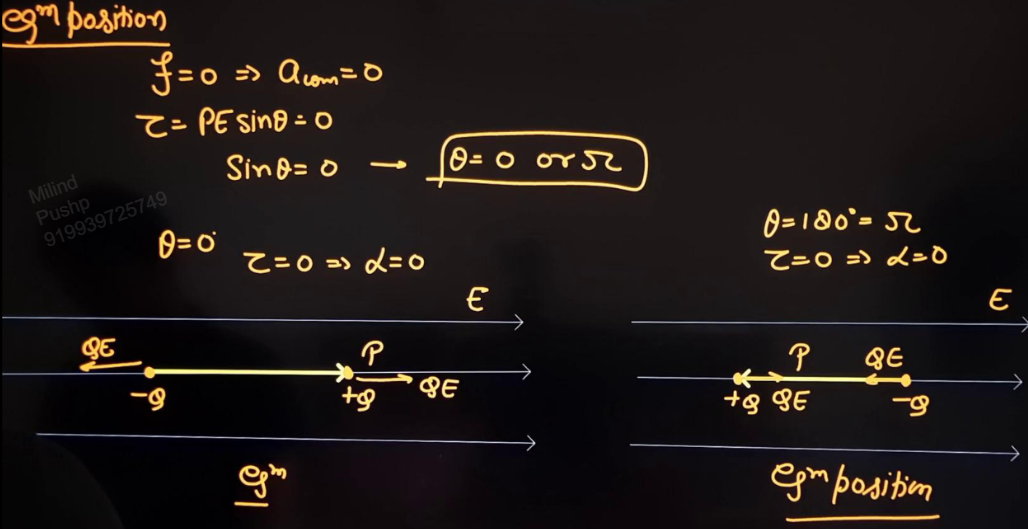 eqᵐ position
f = 0 ⇒ a com = 0
τ = PE sinθ = 0
Sinθ = 0 → θ = 0 or π
Milind
Pushp
919939725749
θ = 0°
τ = 0 ⇒ α = 0
E
QE
P
-Q
+Q
QE
eqᵐ
θ = 180° = π
τ = 0 ⇒ α = 0
E
P
QE
+Q
QE
-Q
eqᵐ position